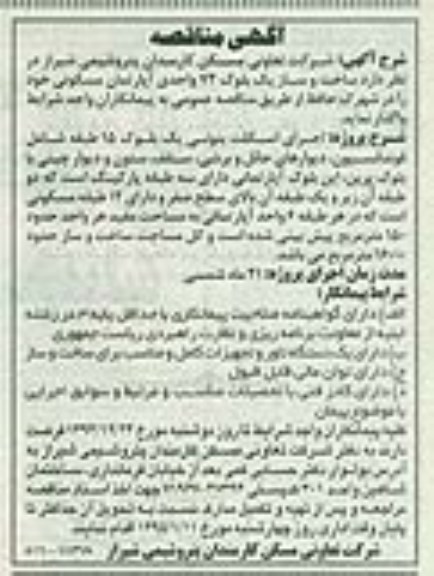 آگهی مناقصه
شرح آگهی: شرکت تعاونی مسکن کارمندان پتروشیمی شیراز در
نظر دارد ساخت و ساز یک بلوک ۷۲ واحدی آپارتمان مسکونی خود
را در شهرک حافظ از طریق مناقصه عمومی به پیمانکاران واجد شرایط
واگذار نماید.
شرح پروژه: اجرای اسکلت بتونی یک بلوک ۱۵ طبقه شامل
فونداسیون، دیوارهای حائل و برشی، سقف، ستون و دیوار چینی با
بلوک پرین، این بلوک آپارتمانی دارای سه طبقه پارکینگ است که دو
طبقه آن زیر و یک طبقه آن بالای سطح صفر و دارای ۱۲ طبقه مسکونی
است که در هر طبقه ۶ واحد آپارتمانی به مساحت مفید هر واحد حدود
۱۵۰ مترمربع پیش بینی شده است و کل مساحت ساخت و ساز حدود
مترمربع می باشد.
مدت زمان اجرای پروژه: ۲۱ ماه شمسی
شرایط پیمانکار:
الف) دارای گواهینامه صلاحیت پیمانکاری با حداقل پایه در رشته
ابنیه از معاونت برنامه ریزی و نظارت راهبردی ریاست جمهوری
ب) دارای یک دستگاه تاور و تجهیزات کامل و مناسب برای ساخت و ساز
ج) دارای توان مالی قابل قبول
د) دارای کادر فنی با تحصیلات مناسب و مرتبط و سوابق اجرایی
با موضوع پیمان
کلیه پیمانکاران واجد شرایط تا روز دوشنبه مورخ فرصت
دارند به دفتر شرکت تعاونی مسکن کارمندان پتروشیمی شیراز به
آدرس بعد از خیابان فرمانداری، ساختمان
واحد ۳۰۱ کدپستی جهت اخذ اسناد مناقصه
مراجعه و پس از تهیه و تکمیل مدارک نسبت به تحویل آن حداکثر تا
پایان وقت اداری روز چهارشنبه مورخ اقدام نمایند.
شرکت تعاونی مسکن کارمندان پتروشیمی شیراز